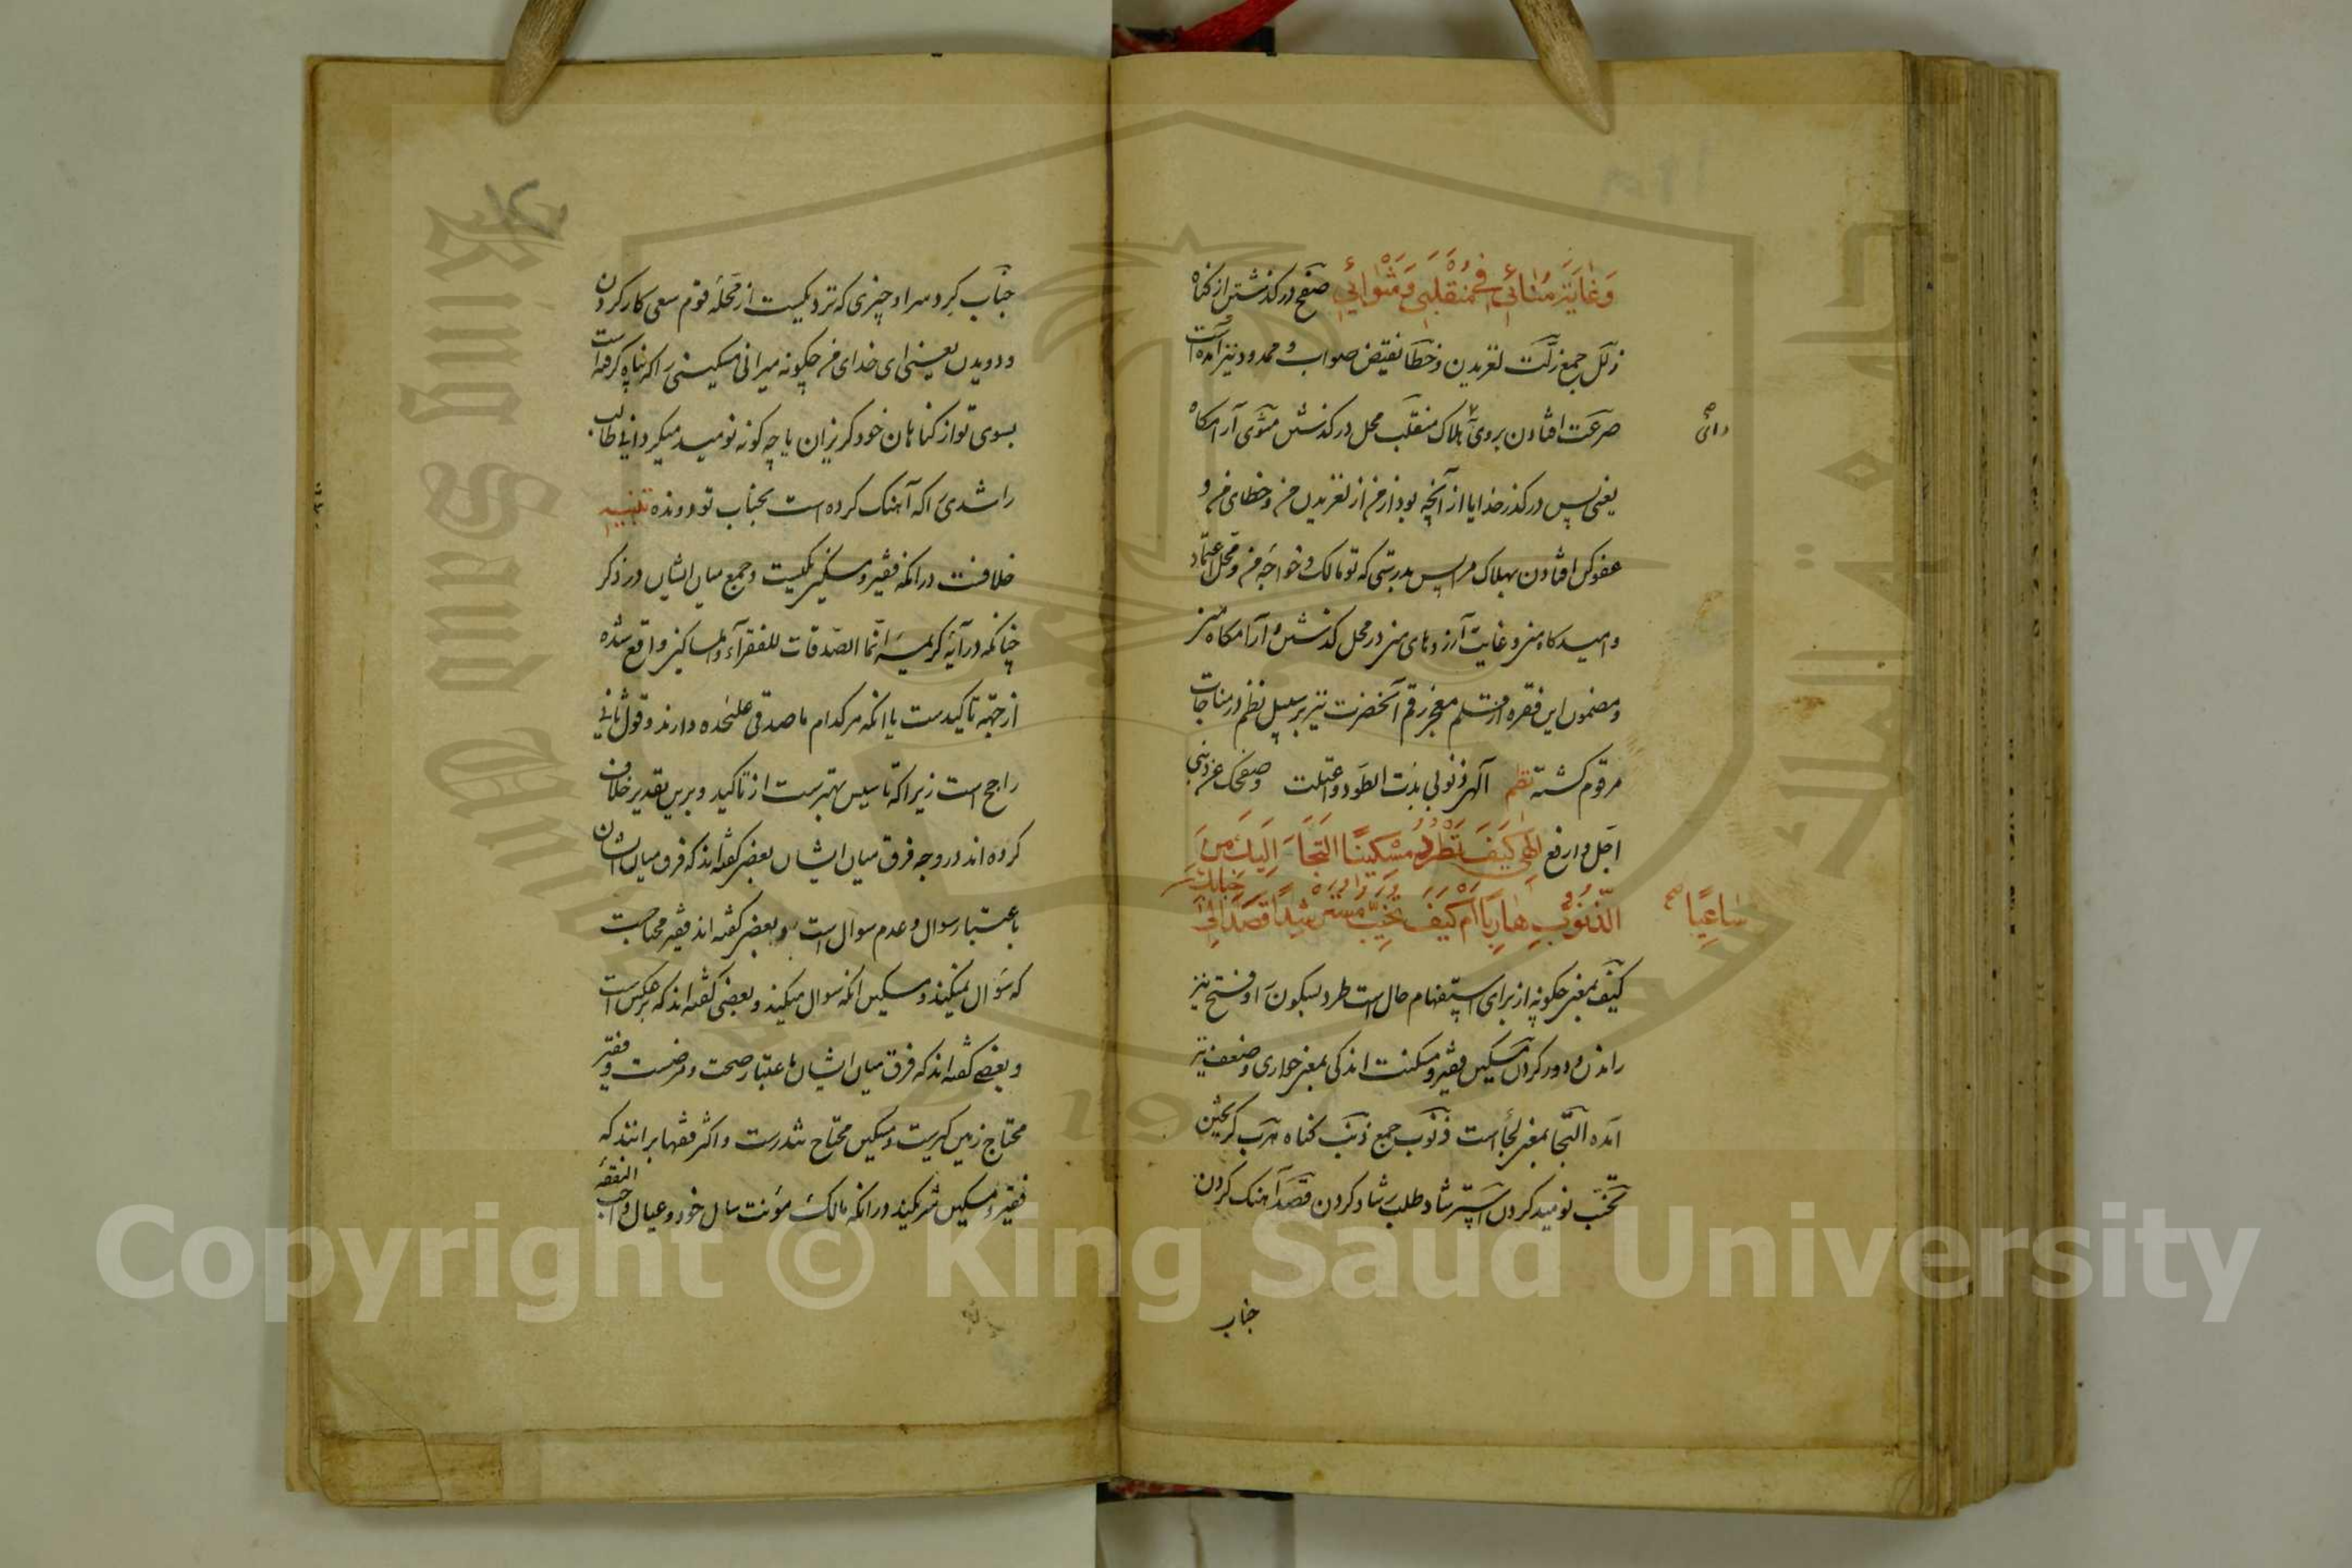 وَغَايَةُ مُنَائِي فِي مُنْقَلَبِي وَمَثْوَايَ صفح در کذشتن از کناه
زلل جمع زلّت لغزیدن و خطا نقیض صواب و ممدود نیز آمده است
صرعت افتادن بروی هلاک منقلب محل در کذشتن مثوی آرامکاه
یعنی پس در کذر خدایا از آنچه بود از من از لغزیدن من و خطای من و
عفو کن افتادن بهلاک مرا پس بدرستی که تو مالک و خواجه من و محل اعتماد
و امیدکاه من و غایت آرزوهای من در محل کذشتن و آرامکاه من
و مضمون این فقره از قلم معجز رقم آنحضرت نیز بر سبیل نظم در مناجات
مرقوم کشته نظم الهی ذنوبی بذت الطود واعتلت وصفحک عن ذنبی
اجل وارفع اِلٰهِي كَيْفَ تَطْرُدُ مِسْكِينًا الْتَجَأَ اِلَيْكَ مِنَ
الذُّنُوبِ هَارِبًا اَمْ كَيْفَ تُخَيِّبُ مُسْتَرْشِدًا قَصَدَ اِلٰى جَنَابِكَ
سَاعِيًا صح
کیف بمعنی چکونه از برای استفهام حال است طرد بسکون را و فتح نیز
راندن و دور کردن مسکین فقیر و مسکنت اندکی بمعنی خواری و ضعف نیز
آمده التجا بمعنی لجأ است ذنوب جمع ذنب کناه هرب کریختن
تخیب نومید کردن استرشاد طلب رشاد کردن قصد آهنک کردن
جناب
جناب کرد سرا و چیزی که نزدیکیست از محلهٔ قوم سعی کار کردن
و دویدن یعنی ای خدای من چکونه میرانی مسکینی را که پناه کرفته است
بسوی تو از کناهان خود کریزان یا چه کونه نومید میکردانی طالب
راشدی را که آهنک کرده است بجناب تو دونده تنبیه
خلافست در آنکه فقیر و مسکین یکیست و جمع میان ایشان در ذکر
چنانکه در آیهٔ کریمه انّما الصّدقات للفقرآء والمساکین واقع شده
از جهة تاکیدست یا آنکه هر کدام ما صدقی علیحده دارند و قول ثانی
راجح است زیرا که تاسیس بهترست از تاکید و برین تقدیر خلاف
کرده اند در وجه فرق میان ایشان بعضی کفته اند که فرق میان ایشان
باعتبار سوال و عدم سوال است و بعضی کفته اند فقیر محتاجیست
که سؤال نمیکند و مسکین آنکه سوال میکند و بعضی کفته اند که برعکس است
و بعضی کفته اند که فرق میان ایشان باعتبار صحت و مرضست و فقیر
محتاج زمین کیریست و مسکین محتاج تندرست و اکثر فقها برانند که
فقیر و مسکین شریکند در آنکه مالک مؤنت سال خود و عیال واجب النفقهٔ